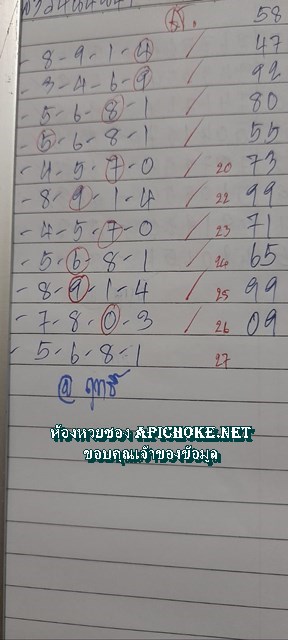 58
- 8-9-1-4 / 47
- 3-4-6-9 / 92
- 5-6-8-1 / 80
- 5-6-8-1 / 55
- 4-5-7-0 / 20 73
- 8-9-1-4 / 22 99
- 4-5-7-0 / 23 71
- 5-6-8-1 / 24 65
- 8-9-1-4 / 25 99
- 7-8-0-3 / 26 09
- 5-6-8-1 27
ห้องหวยซอง APICHOKE.NET
ขอบคุณเจ้าของข้อมูล